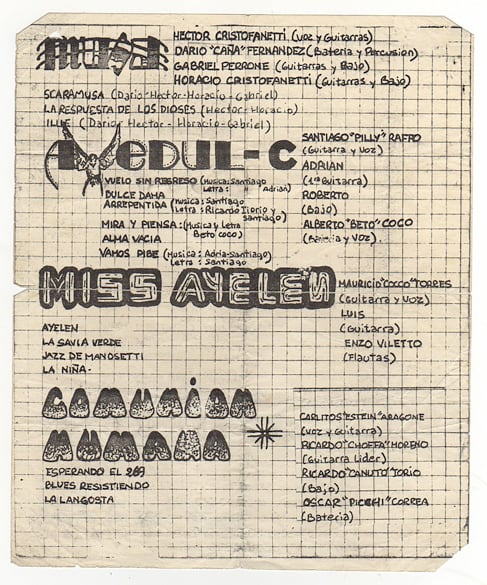 MUSA
HECTOR CRISTOFANETTI (Voz y Guitarras)
DARIO "CAÑA" FERNANDEZ (Bateria y Percusion)
GABRIEL PERRONE (Guitarras y Bajo)
HORACIO CRISTOFANETTI (Guitarras y Bajo)
SCARAMUSA (Dario-Hector-Horacio-Gabriel)
LA RESPUESTA DE LOS DIOSES (Hector-Horacio)
ILLIE (Dario-Hector-Horacio-Gabriel)
AYEDUL-C
SANTIAGO "PILLY" RAFFO
(Guitarra y Voz)
ADRIAN
(1ª Guitarra)
ROBERTO
(Bajo)
ALBERTO "BETO" COCO
(Bateria y VOZ).
VUELO SIN REGRESO (Musica: Santiago
Letra: " Adrian)
DULCE DAMA
ARREPENTIDA (musica: Santiago
Letra: Ricardo Iiorio y
Santiago)
MIRA Y PIENSA: (Musica y Letra
Beto Coco)
ALMA VACIA
VAMOS PIBE (Musica: Adria-Santiago)
Letra: Santiago
MISS AYELEN
MAURICIO "COCCO" TORRES
(Guitarra y Voz)
LUIS
(Guitarra)
ENZO VILETTO
(Flautas)
AYELEN
LA SAVIA VERDE
JAZZ DE MANOSETTI
LA NIÑA-
COMUNION
HUMANA
CARLITOS "ESTEIN" ARAGONE
(Voz y Guitarra)
RICARDO "CHOFFA" MORENO
(Guitarra Lider)
RICARDO "CANUTO" TORIO
(Bajo)
OSCAR "PICCHI" CORREA
(Bateria)
ESPERANDO EL 269
BLUES RESISTIENDO
LA LANGOSTA